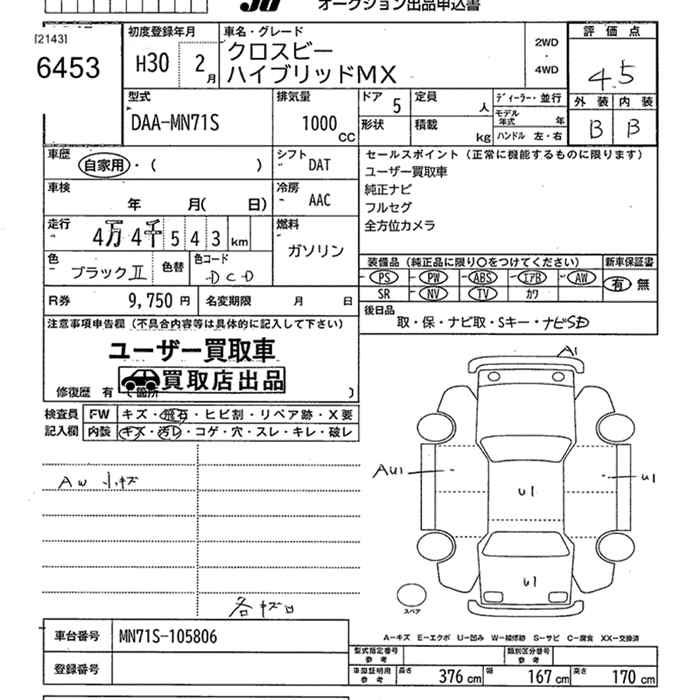 JU オークション出品申込書
[2143]
6453
初度登録年月
H30 2月
車名・グレード
クロスビー
ハイブリッドMX
2WD
・
4WD
評価点
4.5
外装 内装
B B
型式
DAA-MN71S
排気量
1000 CC
ドア 5
定員 人
ディーラー・並行
モデル年式 年
形状
積載 kg
ハンドル 左・右
車歴
自家用・( )
シフト DAT
車検
年 月( 日)
冷房 AAC
走行
4万 4千 5 4 3 km
燃料
ガソリン
色 ブラックⅡ
色替
色コード
DCD
R券 9,750 円
名変期限 月 日
セールスポイント(正常に機能するものに限ります)
ユーザー買取車
純正ナビ
フルセグ
全方位カメラ
装備品(純正品に限り〇をつけてください)
新車保証書
PS PW ABS エアB AW
SR NV TV カワ
有・無
後日品
取・保・ナビ取・Sキー・ナビSD
注意事項申告欄(不具合内容等は具体的に記入して下さい)
ユーザー買取車
買取店出品
修復歴 有 (箇所 )
検査員
記入欄
FW キズ・飛石・ヒビ割・リペア跡・X要
内装 キズ・汚レ・コゲ・穴・スレ・キレ・破レ
AW 小キズ
各キズ
A1
AU1
U1
U1
U1
スペア
A―キズ E―エクボ U―凹み W―補修跡 S―サビ C―腐食 XX―交換済
車台番号 MN71S-105806
登録番号
型式指定番号
参考
類別区分番号
参考
車庫証明用
参考
長さ 376 cm 幅 167 cm 高さ 170 cm